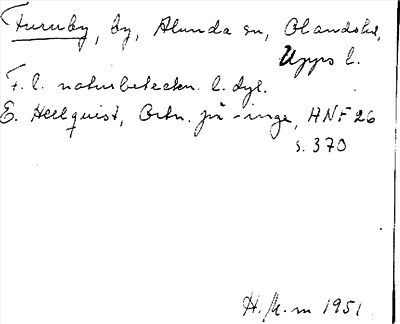 Furuby, by, Alunda sn, Olandshd,
Upps l.
F. l. naturbeteckn. l. dyl.
E. Hellquist, Ortn. på -inge, HNF 26
s. 370
H. M-m 1951